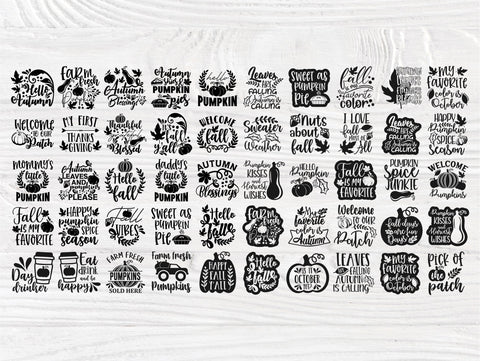 Hello
Autumn
FARM
fresh
Autumn
Blessings
Autumn
skies &
PUMPKIN
pies
PUMPKIN
Leaves
ARE
FALLING
AUTUMN IS
CALLING
SWEET AS
PUMPKIN
PIE
fall
favorite
color
MY
FAVORITE
color is
October
WELCOME
to our
Patch
MY FIRST
THANKS
GIVING
thankful
WELCOME
fall
Sweater
Weather
Nuts
about
FALL
I LOVE
fall
HAPPY
PUMPKIN
SPICE
SEASON
mommy's
little
PUMPKIN
AUTUMN
LEAVES
AND
pumpkin
PLEASE
Hello
fall
daddy's
little
PUMPKIN
AUTUMN
Blessings
Pumpkin
KISSES
Harvest
WISHES
HELLO
Pumpkin
Fall
IS MY
FAVORITE
PUMPKIN
SPICE
JUNKIE
WELCOME
PUMPKIN
Fall
IS MY
FAVORITE
HAPPY
PUMPKIN
spice
season
Fall
VIBES
SWEET AS
PUMPKIN
PIE
Hello
fall
FARM
my
favorite
color is
Autumn
Welcome
to our
Patch
Fall days
are fun
Days
Pumpkin
KISSES
Harvest
WISHES
Day
drinker
Eat
drink
and be
happy
FARM FRESH
PUMPKINS
SOLD HERE
Farm fresh
PUMPKINS
HAPPY
FALL
Hello
fall
IS IT
OCTOBER
YET?
LEAVES
are FALLING
AUTUMN
IS CALLING
MY
FAVORITE
color is
October
PICK OF
the
patch